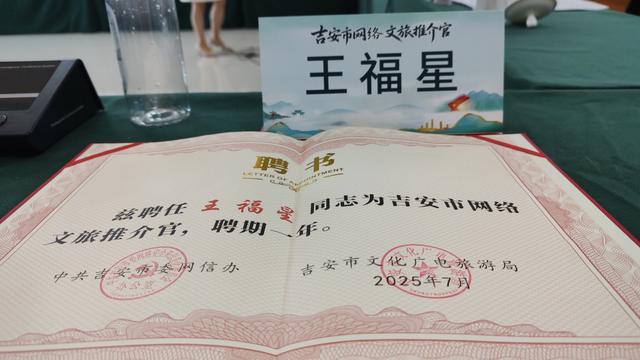 吉安市网络文旅推介官
王福星
聘书
LETTER OF APPOINTMENT
兹聘任 王福星 同志为吉安市网络
文旅推介官，聘期 年。
中共吉安市委网信办
吉安市文化广电旅游局
2025年7月